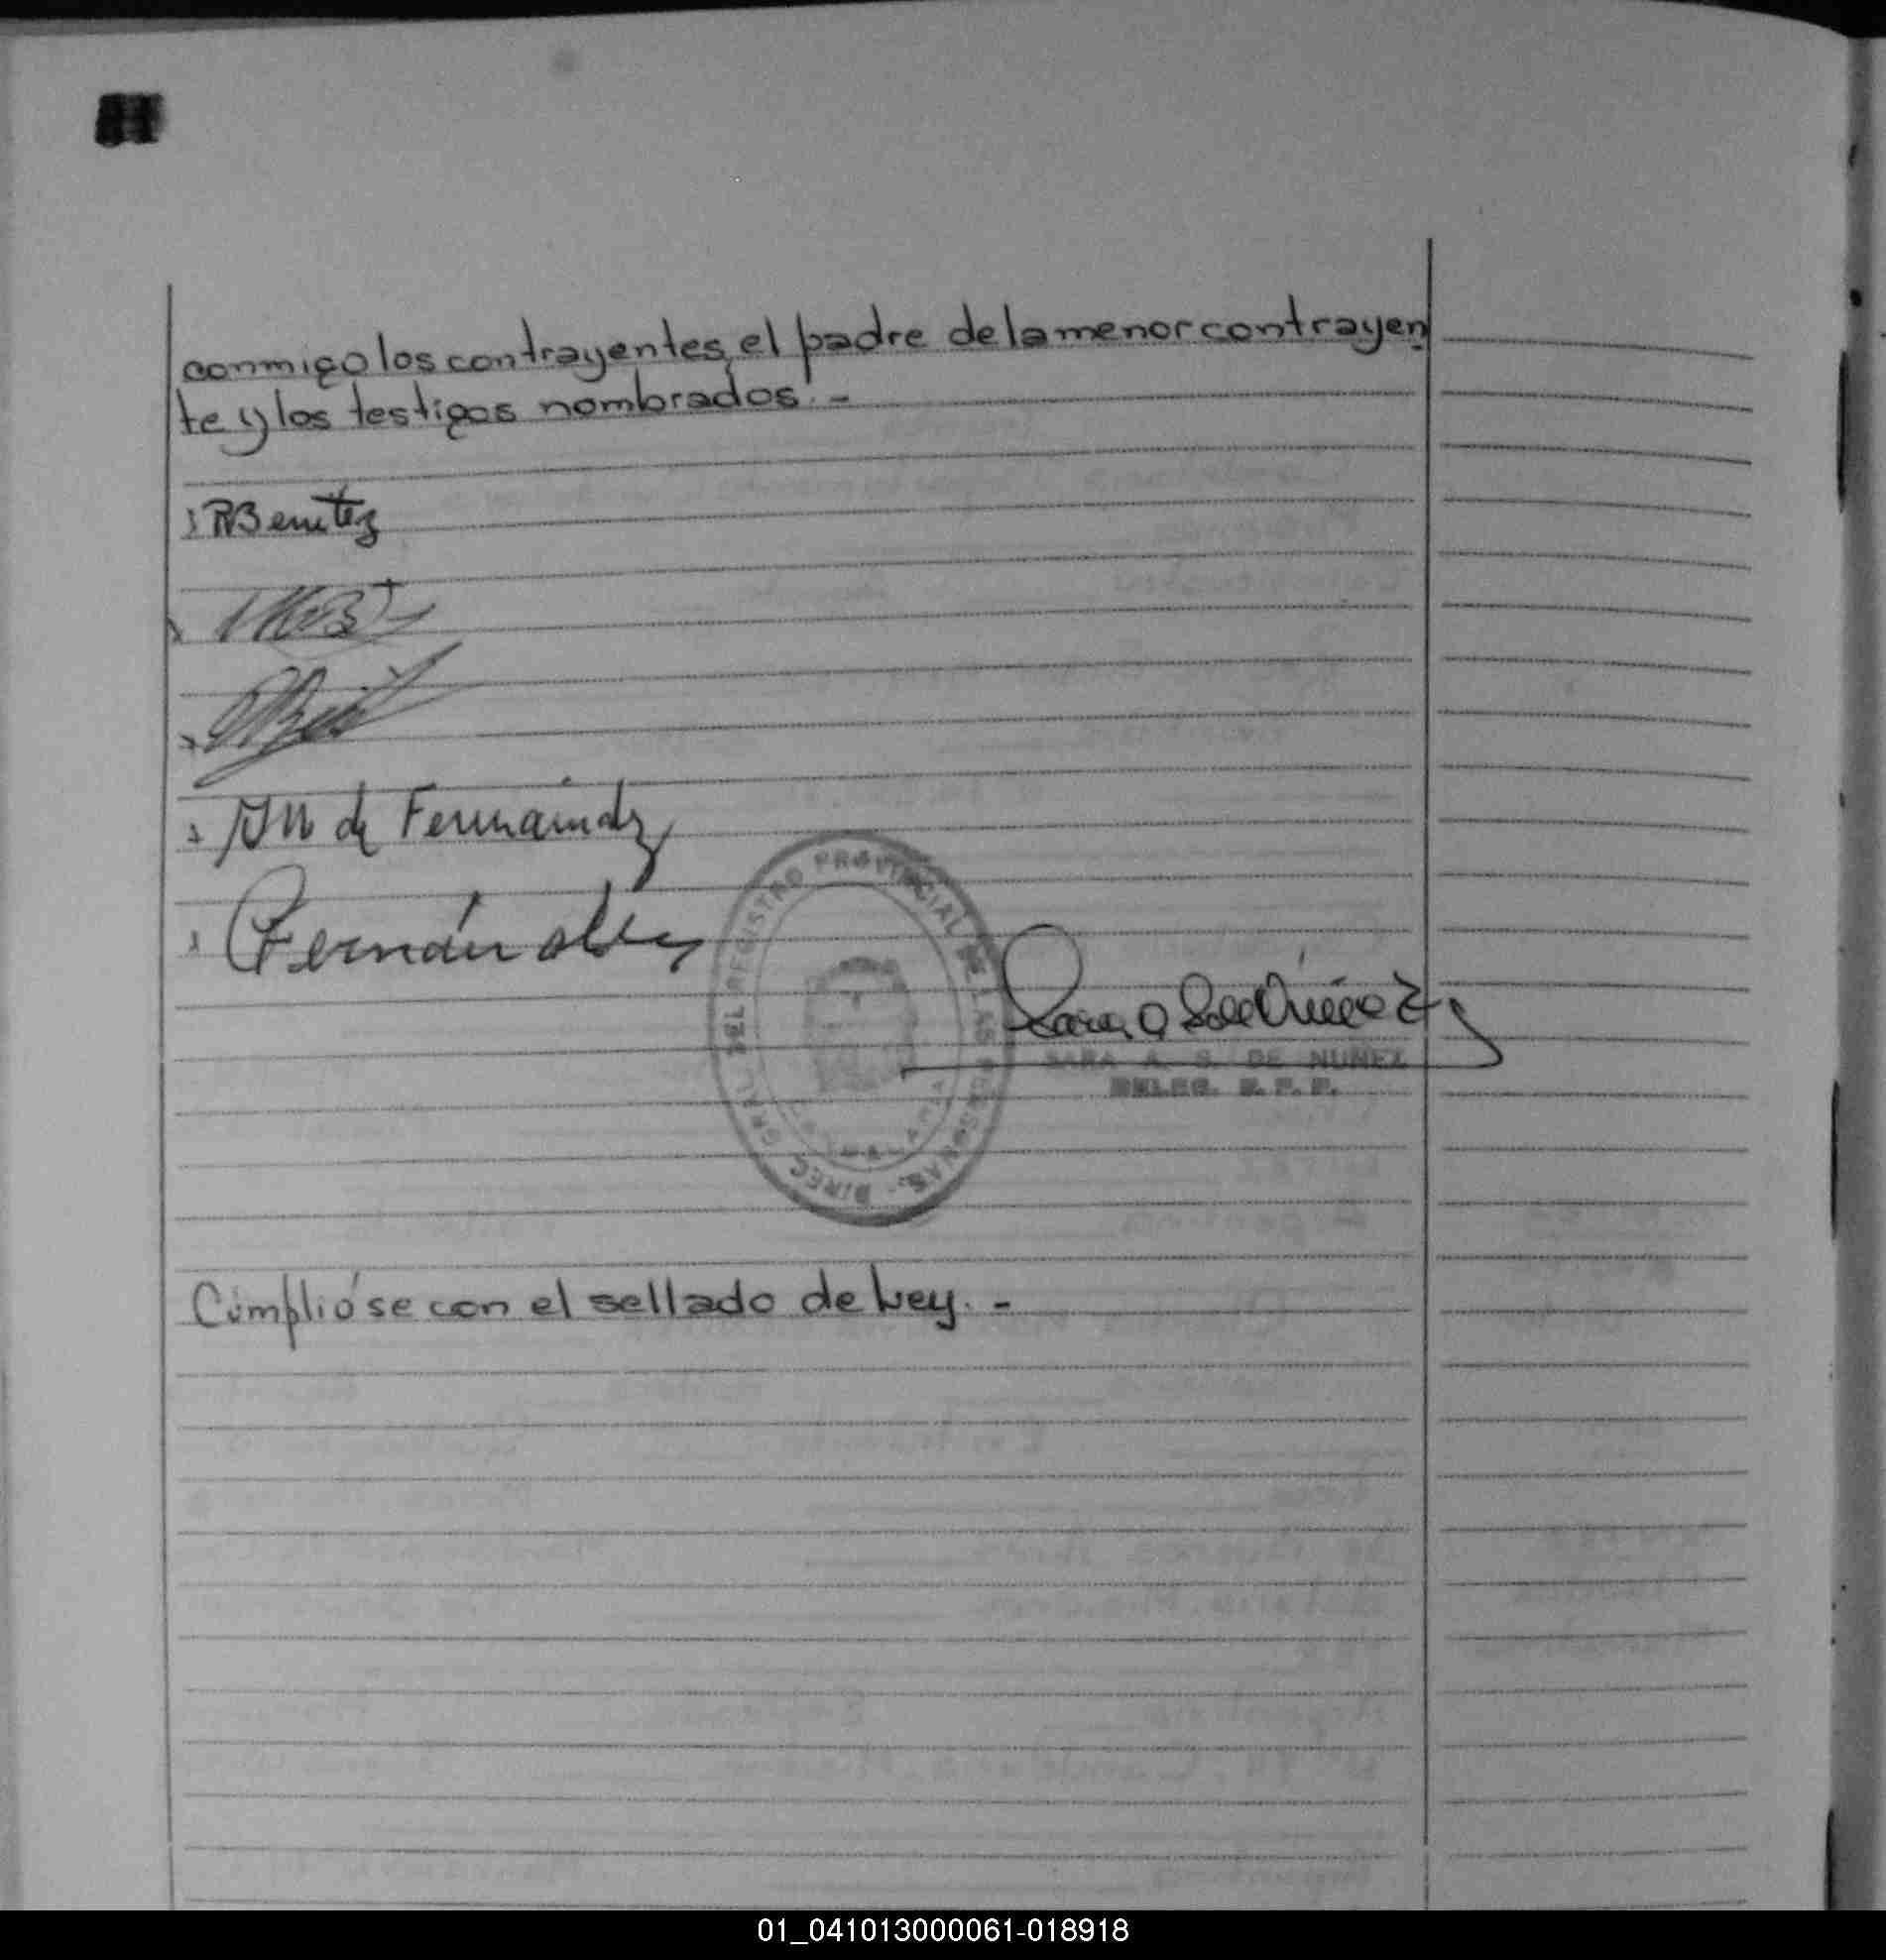 conmigo los contrayentes, el padre de la menor contrayen
te y los testigos nombrados.-
RBenitez
de Fernandez
Fernández
DIREC. GRAL. DEL REGISTRO PROVINCIAL DE LAS PERSONAS.
SARA A. S. DE NUÑEZ
DELEG. R. P. P.
Cúmplióse con el sellado de Ley.-
01_041013000061-018918